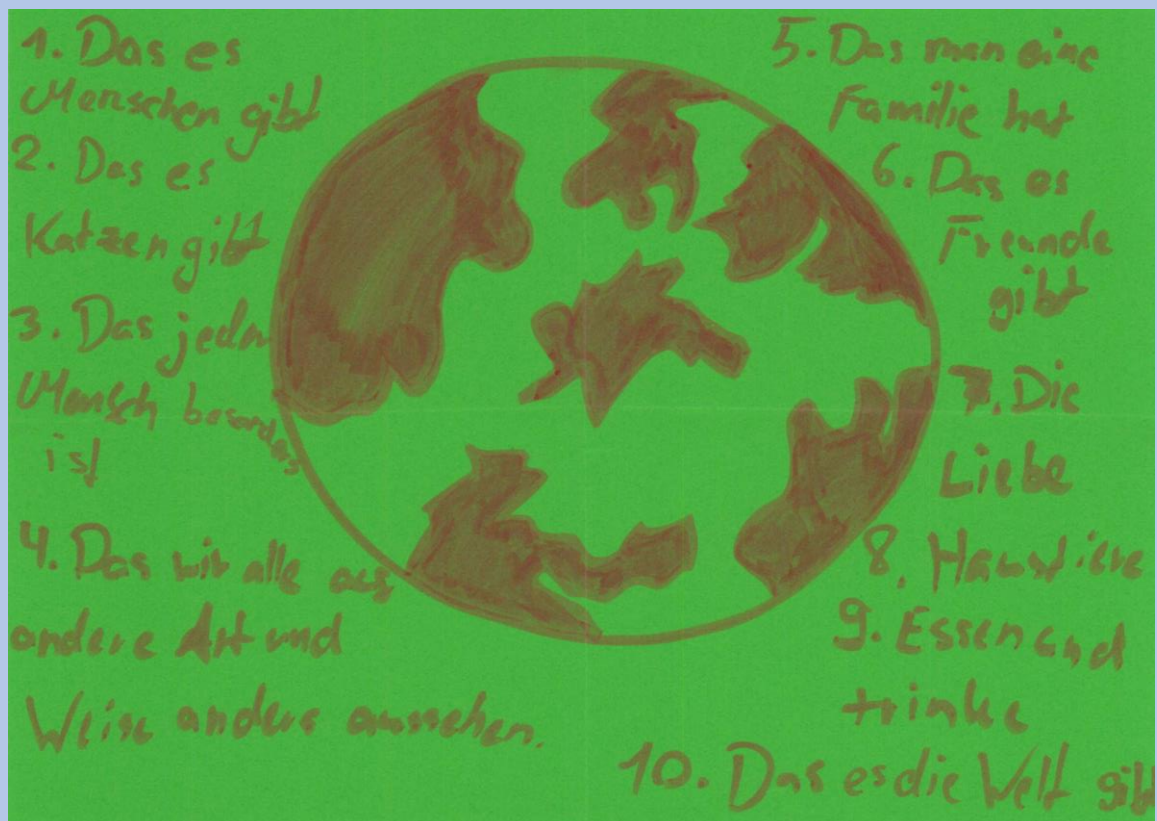 1. Das es
Menschen gibt
2. Das es
Katzen gibt
3. Das jeder
Mensch besonders
ist
4. Das wir alle aus
andere Art und
Weise anders aussehen.
5. Das man eine
Familie hat
6. Das es
Freunde
gibt
7. Die
Liebe
8. Haustiere
9. Essen und
trinke
10. Das es die Welt gibt